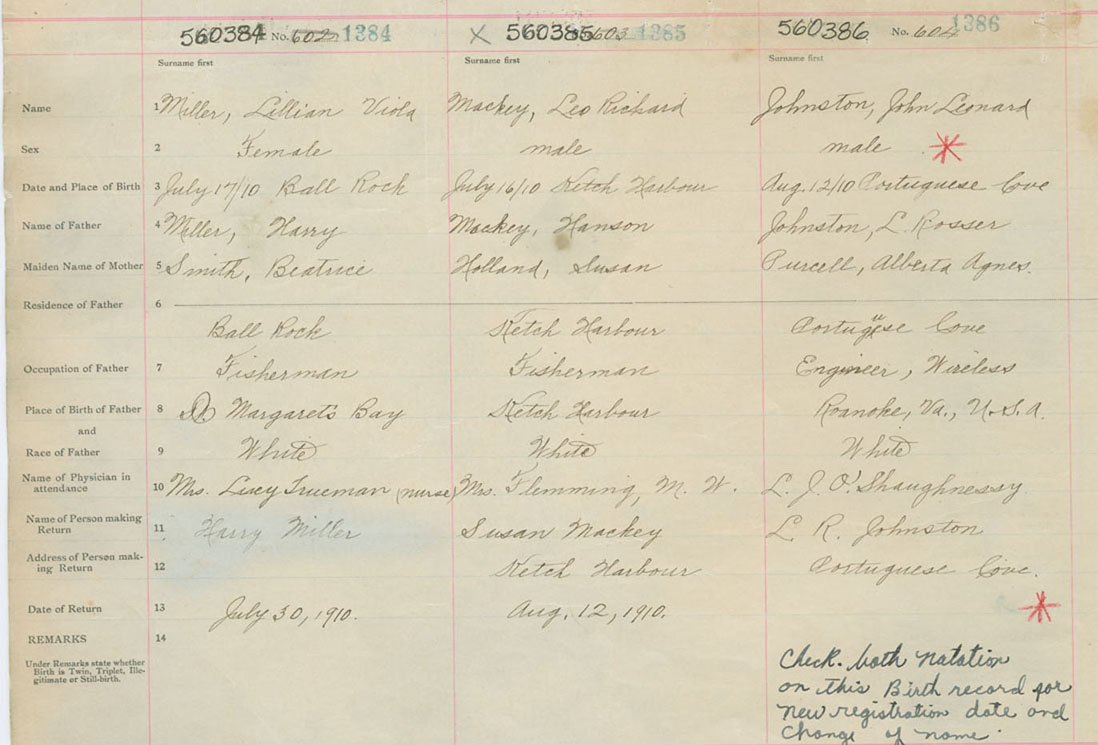 560384 No. 602 1384 X 560385 603 1385 560386 No. 604 1386
Surname first Surname first Surname first
Name 1 Miller, Lillian Viola Mackey, Leo Richard Johnston, John Leonard
Sex 2 Female male male
Date and Place of Birth 3 July 17/10 Ball Rock July 16/10 Ketch Harbour Aug. 12/10 Portuguese Cove
Name of Father 4 Miller, Harry Mackey, Hanson Johnston, L. Rosser
Maiden Name of Mother 5 Smith, Beatrice Holland, Susan Purcell, Alberta Agnes.
Residence of Father 6
Ball Rock Ketch Harbour Portuguese Cove
Occupation of Father 7 Fisherman Fisherman Engineer, Wireless
Place of Birth of Father 8 Margaret's Bay Ketch Harbour Roanoke, Va., U.S.A.
and
Race of Father 9 White White White
Name of Physician in
attendance 10 Mrs. Lucy Trueman (nurse) Mrs. Flemming, M. W. L. J. O'Shaughnessy
Name of Person making
Return 11 Harry Miller Susan Mackey L. R. Johnston
Address of Person mak-
ing Return 12 Ketch Harbour Portuguese Cove.
Date of Return 13 July 30, 1910. Aug. 12, 1910.
REMARKS 14
Under Remarks state whether
Birth is Twin, Triplet, Ille-
gitimate or Still-birth.
Check both notation
on this Birth record for
new registration date and
change of name.